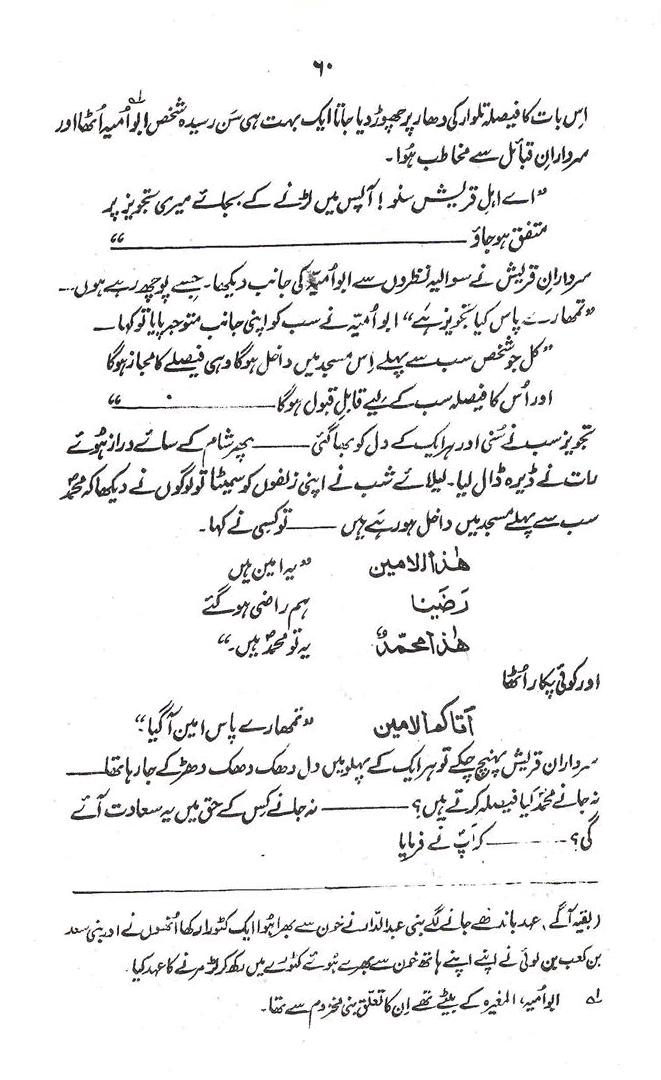 ۶۰
اس بات کا فیصلہ تلوار کی دھار پر چھوڑ دیا جاتا ایک بہت ہی سَن رسیدہ شخص ابو اُمیہ اُٹھا اور
سردارانِ قبائل سے مخاطب ہُوا۔
”اے اہلِ قریش سنو! آپس میں لڑنے کے بجائے میری تجویز پر
متفق ہو جاؤ ــــــــــــ “
سردارانِ قریش نے سوالیہ نظروں سے ابو اُمیہ کی جانب دیکھا۔ جیسے پوچھ رہے ہوں ــــ
”تمھارے پاس کیا تجویز ہے“ ابو اُمیّہ نے سب کو اپنی جانب متوجہ پایا تو کہا ــ
”کل جو شخص سب سے پہلے اِس مسجد میں داخل ہوگا وہی فیصلے کا مجاز ہوگا
اور اُس کا فیصلہ سب کے لیے قابلِ قبول ہوگا ــــــــــــ “
تجویز سب نے سُنی اور ہر ایک کے دل کو بھا گئی ــــــ پھر شام کے سائے دراز ہُوئے
رات نے ڈیرہ ڈال لیا۔ لیلائے شب نے اپنی زلفوں کو سمیٹا تو لوگوں نے دیکھا کہ محمدؐ
سب سے پہلے مسجد میں داخل ہو رہے ہیں ــــــ تو کسی نے کہا۔
ھٰذا الامین ”یہ امین ہیں
رَضَینا ہم راضی ہو گئے
ھٰذا محمّدؐ یہ تو محمدؐ ہیں۔“
اور کوئی پکار اُٹھا
اَتاکم الامین ”تمھارے پاس امین آ گیا“
سردارانِ قریش پہنچ چکے تو ہر ایک کے پہلو میں دل دھک دھک دھڑکے جا رہا تھا ــــ
نہ جانے محمدؐ کیا فیصلہ کرتے ہیں؟ ــــــ نہ جانے کِس کے حق میں یہ سعادت آئے
گی؟ ــــــ کہ آپؐ نے فرمایا
(بقیہ آگے) عہد باندھے جانے لگے بنی عبدالدّار نے خون سے بھرا ہوا ایک کٹورا رکھا اُنھوں نے اور بنی سعد
بن کعب بن لوئی نے اپنے اپنے ہاتھ خون سے بھرے ہوئے کٹورے میں رکھ کر لڑ مرنے کا عہد کیا۔
لہ ابو اُمیہ، المغیرہ کے بیٹے تھے اِن کا تعلق بنی مخزوم سے تھا۔